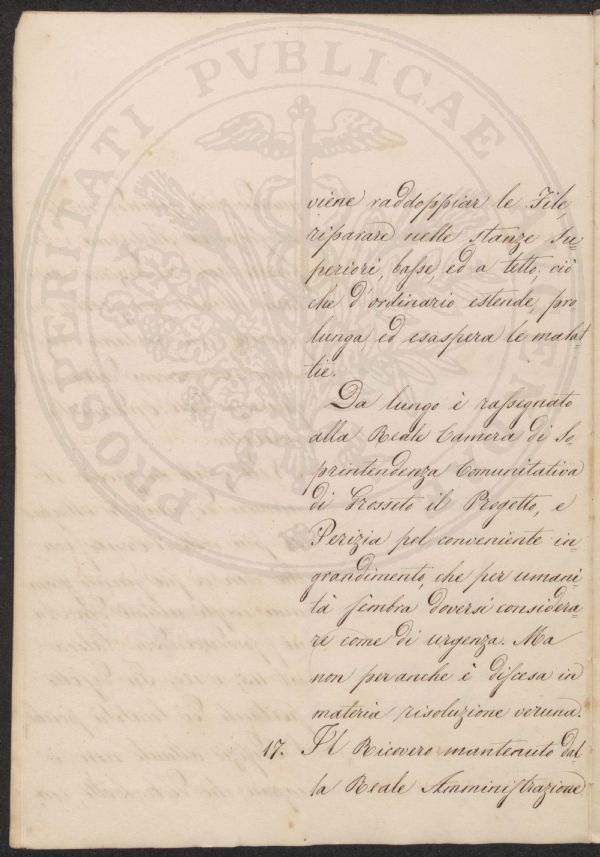 PROSPERITATI PVBLICAE
viene raddoppiar le File,
riparare nelle stanze Su=
periori, basse, ed a tetto; ciò
che d'ordinario estende, pro
lunga, ed esaspera le malat=
tie.
Da lungo è rassegnato
alla Reale Camera di So
printendenza Comunitativa
di Grosseto il Progetto, e
Perizia pel conveniente in=
grandimento, che per umani=
tà sembra doversi considera=
re come di urgenza. Ma
non per anche è discesa in
materia risoluzione veruna.
17. Il Ricovero mantenuto dal=
la Reale Amministrazione